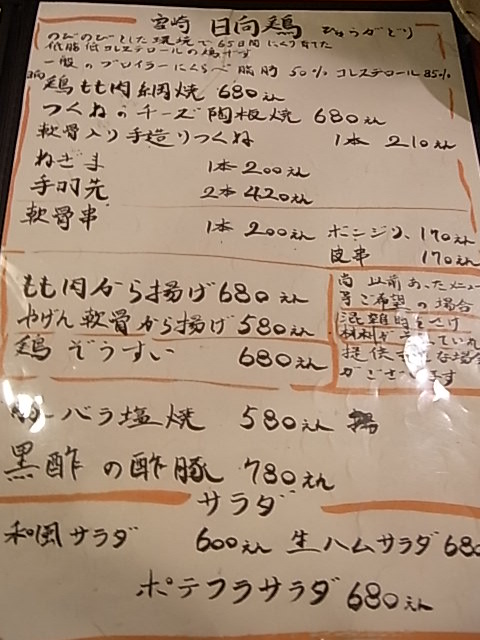 宮崎 日向鶏 ひゅうがどり
のびのびとした環境で65日間じっくり育てた
低脂肪低コレステロールの鶏です
一般のブロイラーにくらべ脂肪50% コレステロール85%
日向鶏もも肉網焼 680えん
つくねのチーズ陶板焼 680えん
軟骨入り手造りつくね 1本 210えん
ねぎま 1本 200えん
手羽先 2本 420えん
軟骨串 1本 200えん ボンジリ 170えん
皮串 170えん
もも肉から揚げ 680えん
やげん軟骨から揚げ 580えん
鶏ぞうすい 680えん
尚 以前あったメニュー
等ご希望の場合
混雑時をさけ
材料が
提供 な場合
がございます
バラ塩焼 580えん
黒酢の酢豚 780えん
サラダ
和風サラダ 600えん 生ハムサラダ 680
ポテフラサラダ 680えん